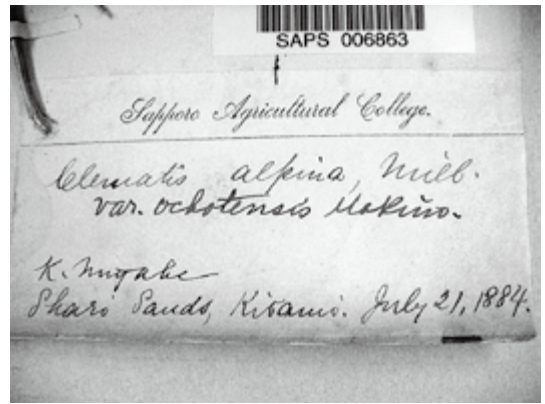 SAPS 006863
Sapporo Agricultural College.
Clematis alpina, Mill.
var. ochotensis Makino.
K. Miyabe
Shari Sands, Kitami. July 21, 1884.